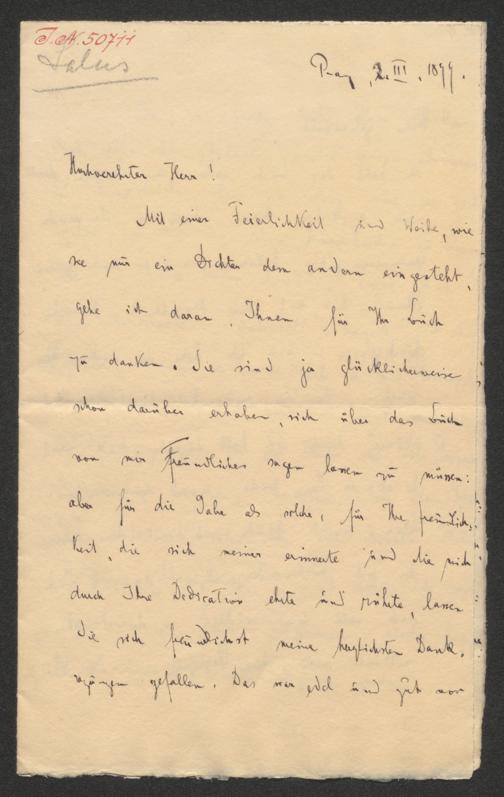 I.N. 50711
Salus
Prag, 2. III. 1899.
Hochverehrter Herr!
Mit einer Feierlichkeit und Weihe, wie
sie nur ein Dichter dem andern eingesteht,
gehe ich daran, Ihnen für Ihr Buch
zu danken. Sie sind ja glücklicherweise
schon darüber erhaben, sich über das Buch
von mir Freundliches sagen lassen zu müssen:
aber für die Gabe als solche, für Ihre Freundlich-
keit, die sich meiner erinnerte und die mich
durch Ihre Dedication ehrte und rührte, lassen
Sie sich freundlichst meine herzlichsten Dank-
sagungen gefallen. Das war edel und gut von